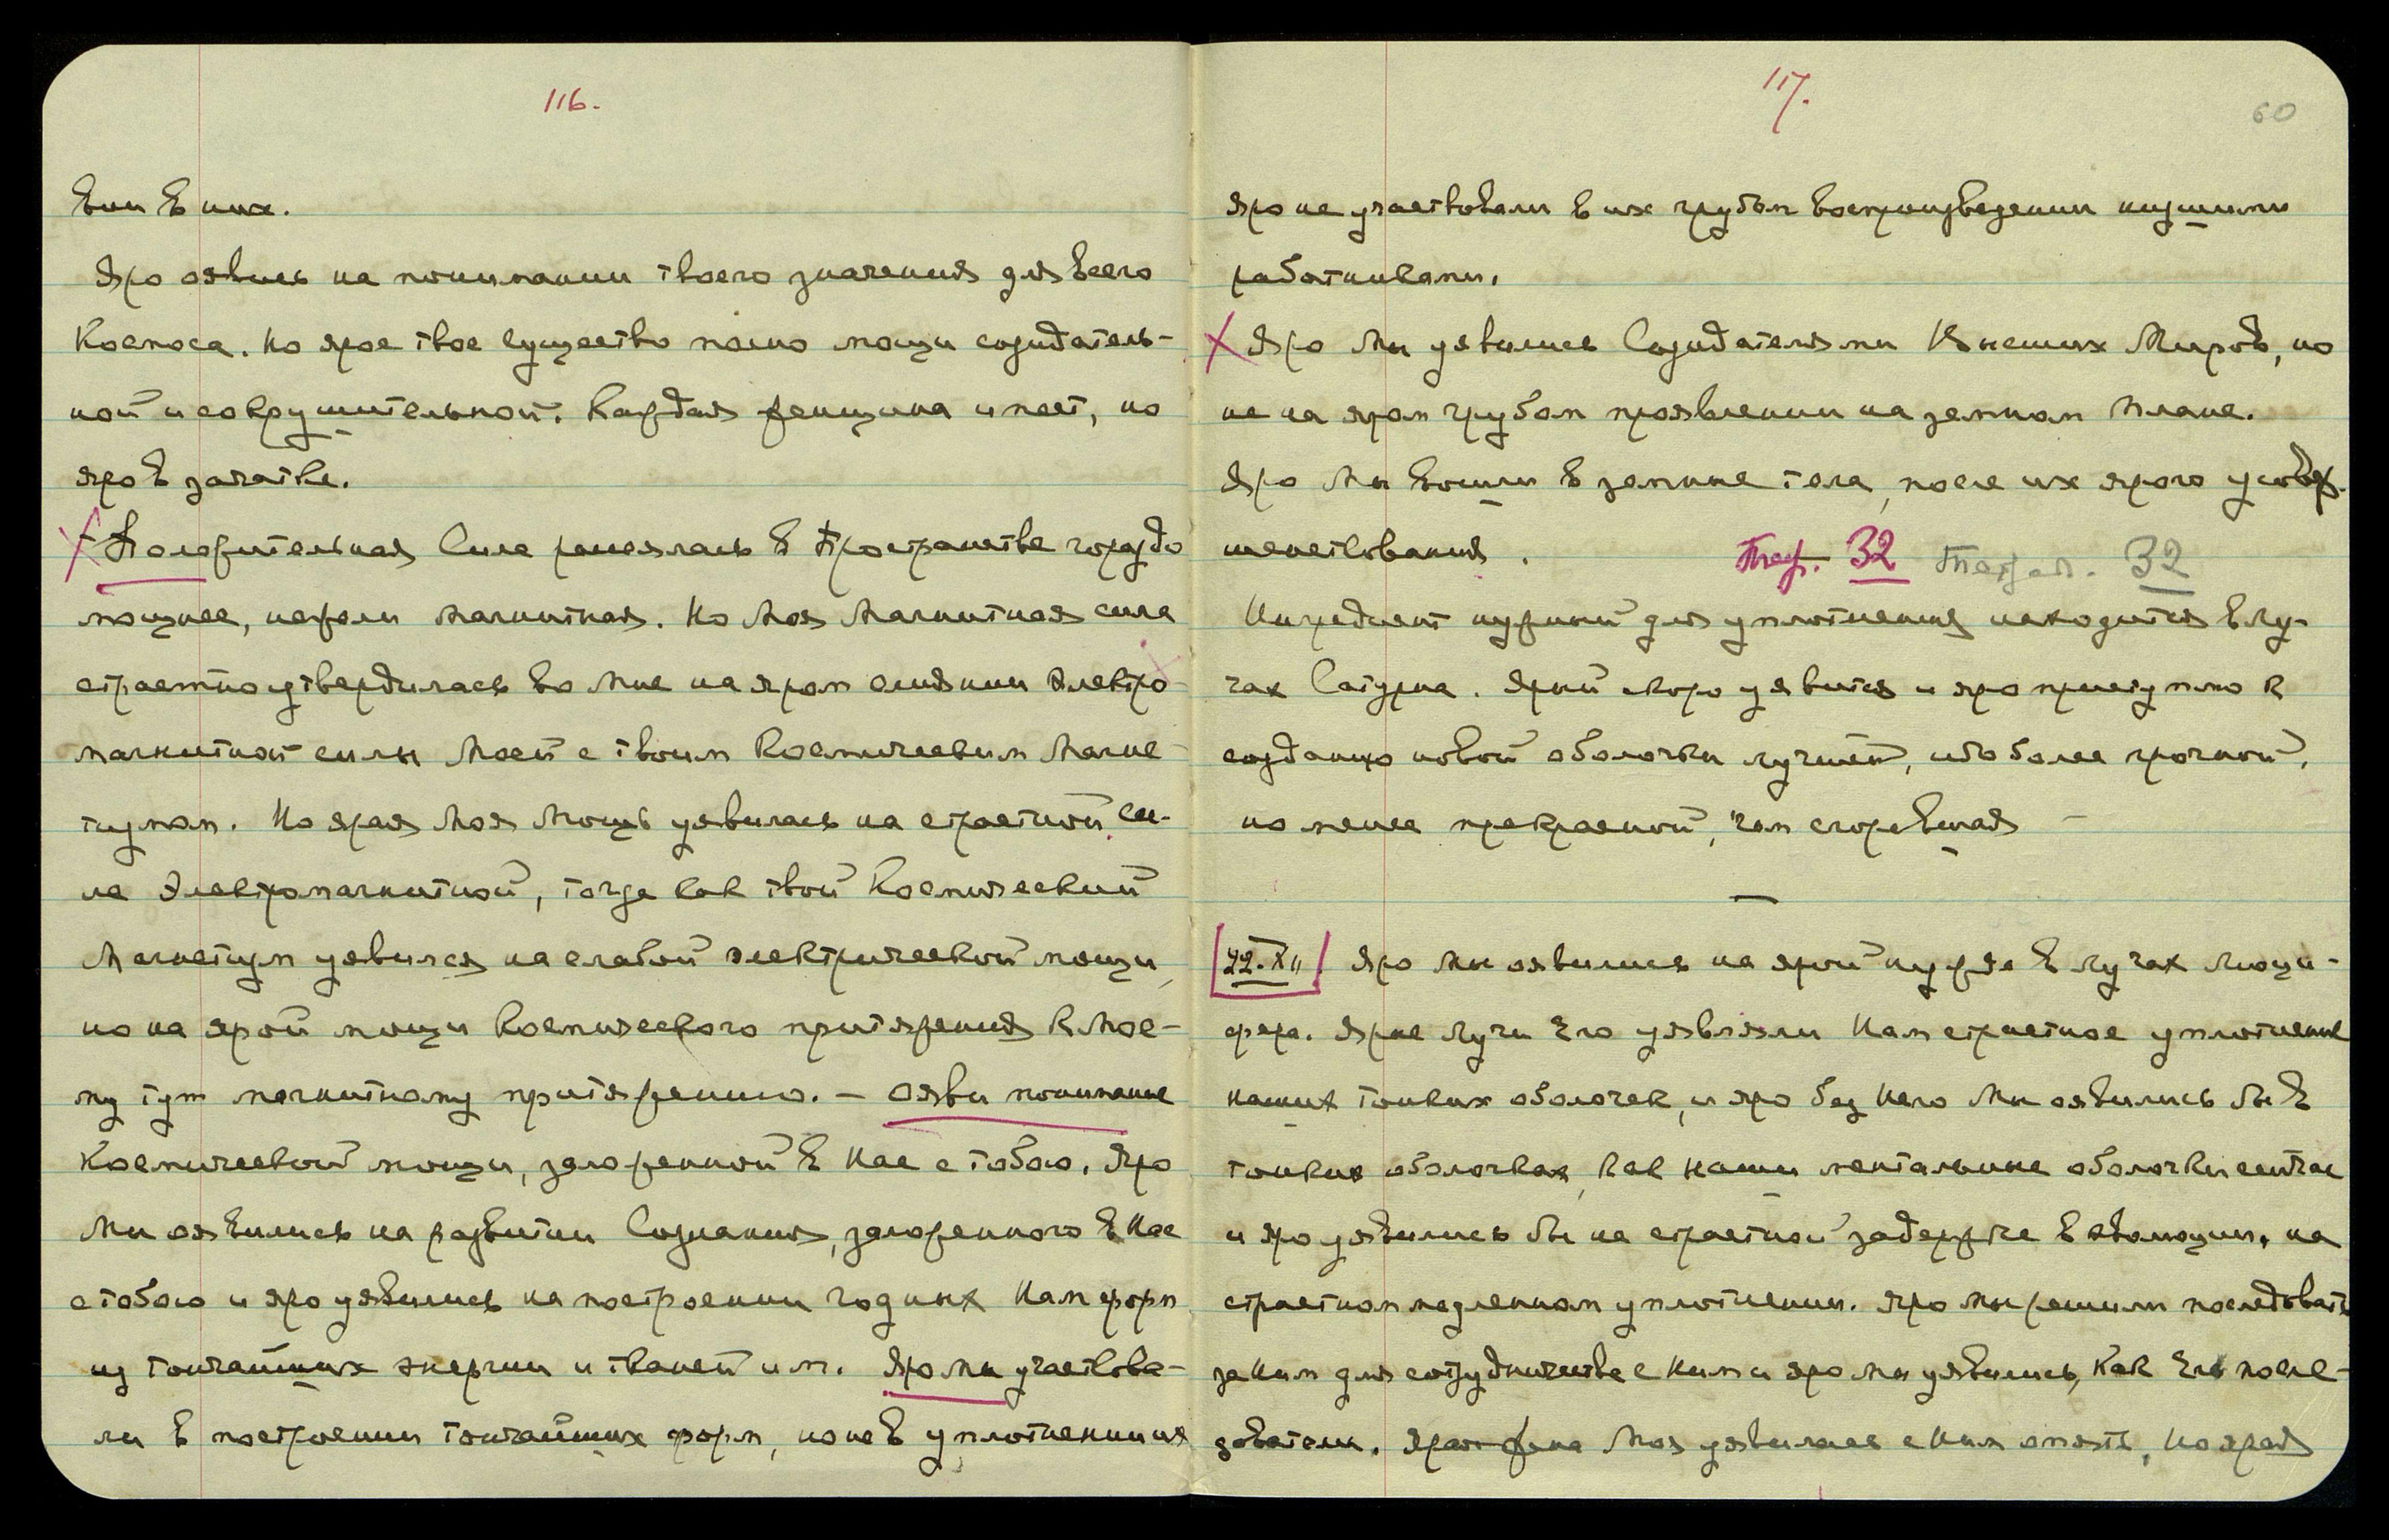 116.
вии в них.
Яро оявись на понимании твоего значения для всего
Космоса. Но ярое твое Существо полно мощи созидатель-
ной и сокрушительной. Каждая женщина имеет, но
яро в зачатке.
Положительная Сила разнеслась в Пространстве гораздо
мощнее, нежели Магнитная. Но Моя Магнитная сила
страстно утвердилась во Мне на яром слиянии Электро-
магнитной силы Моей с твоим Космическим Магне-
тизмом. Но ярая Моя Мощь уявилась на страстной Си-
ле Электромагнитной, тогда как твой Космический
Магнетизм уявился на слабой электрической мощи,
но на ярой мощи Космического притяжения к Мое-
му тут магнитному притяжению. — Ояви понимание
Космической мощи, заложенной в Нас с тобою. Яро
Мы оявились на развитии Сознания, заложенного в Нас
с тобою и яро уявились на построении годных Нам форм
из тончайших энергии и тканей им. Яро Мы участвова-
ли в построении тончайших форм, но не в уплотнении их
117.
60
Яро не участвовали в их грубом воспроизведении низшими
работниками.
Яро Мы уявились Создателями Высших Миров, но
не на яром грубом проявлении на земном плане.
Яро Мы вошли в земные тела, после их ярого усовер-
шенствования.
Тетр. 32 Тетрад. 32
Ингредиент нужный для уплотнения находится в Лу-
чах Сатурна. Ярый скоро уявится и яро приступлю к
созданию новой оболочки лучшей, ибо более прочной,
но менее прекрасной, чем сгоревшая —
22.XII Яро Мы оявились на ярой нужде в лучах Люци-
фера. Ярые Лучи Его уявляли Нам страстное уплотнение
наших тонких оболочек, и яро без Него Мы оявились бы в
тонких оболочках, как наши ментальные оболочки сейчас
и яро уявились бы на страстной задержке в эволюции, на
страстном медленном уплотнении. Яро Мы решили последовать
за Ним для сотрудничества с Ним и яро Мы уявились, как Его после-
дователи. Ярая жена Моя уявилась с Ним опять, но ярая